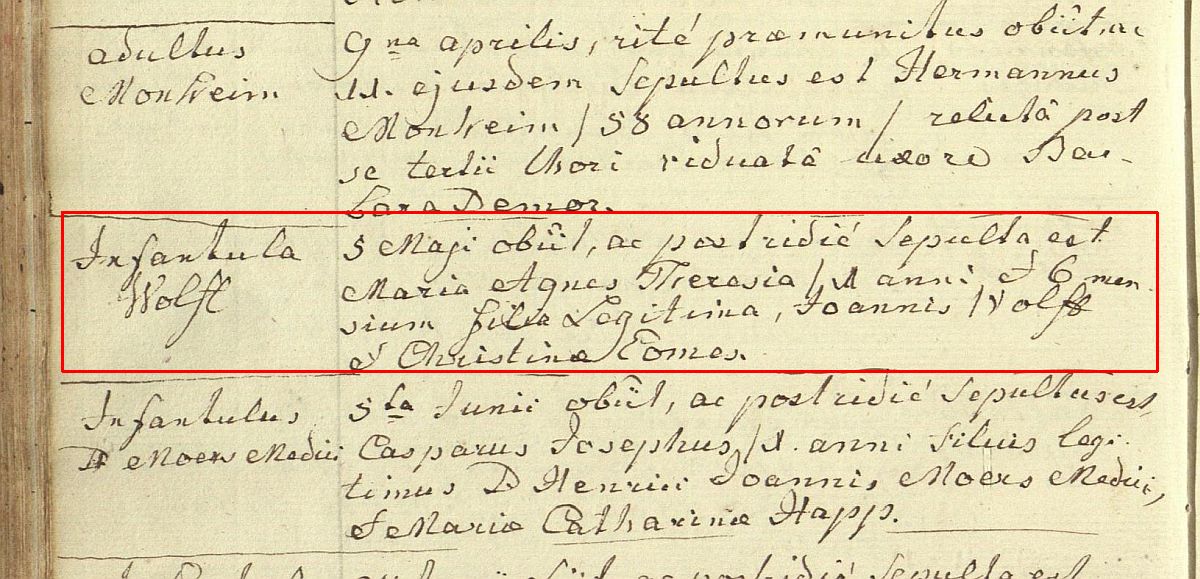 adultus
Monheim
9na aprilis, rité præmunitus obiit, ac
11. ejusdem sepultus est Hermannus
Monheim / 58 annorum / relictâ post
se tertii thori viduatâ uxore Bar-
bara Demor.
Infantula
Wolff
5 Maji obiit, ac postridié sepulta est
Maria Agnes Theresia / 1 anni et 6 men-
sium filia Legitima, Joannis Wolff
et Christinæ Comes.
Infantulus
D Moers Medici
5ta Junii obiit, ac postridié sepultus est,
Casparus Josephus / 1. anni filius legi-
timus D Henrici Joannis Moers Medici,
et Mariæ Catharinæ Happ.
ac postridié sepulta est